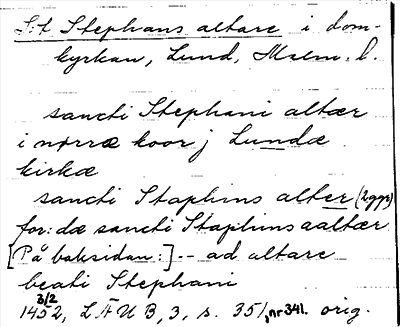 S:t Stephans altare i dom-
kyrkan, Lund, Malm. l.
sancti Stephani altær
i nørræ koor j Lundæ
kirkæ
sancti Staphins alter (2ggr)
for: dæ sancti Staphins aaltær
[På baksidan:] -- ad altare
beati Stephani
3/2
1452, LÄUB, 3, s. 351, nr 341. orig.